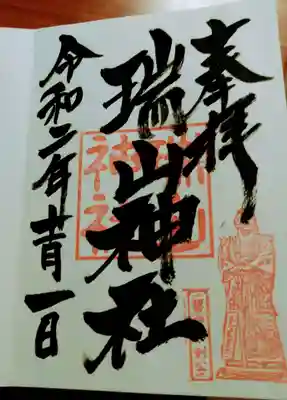 奉拝
瑞山神社
令和二年十一月一日